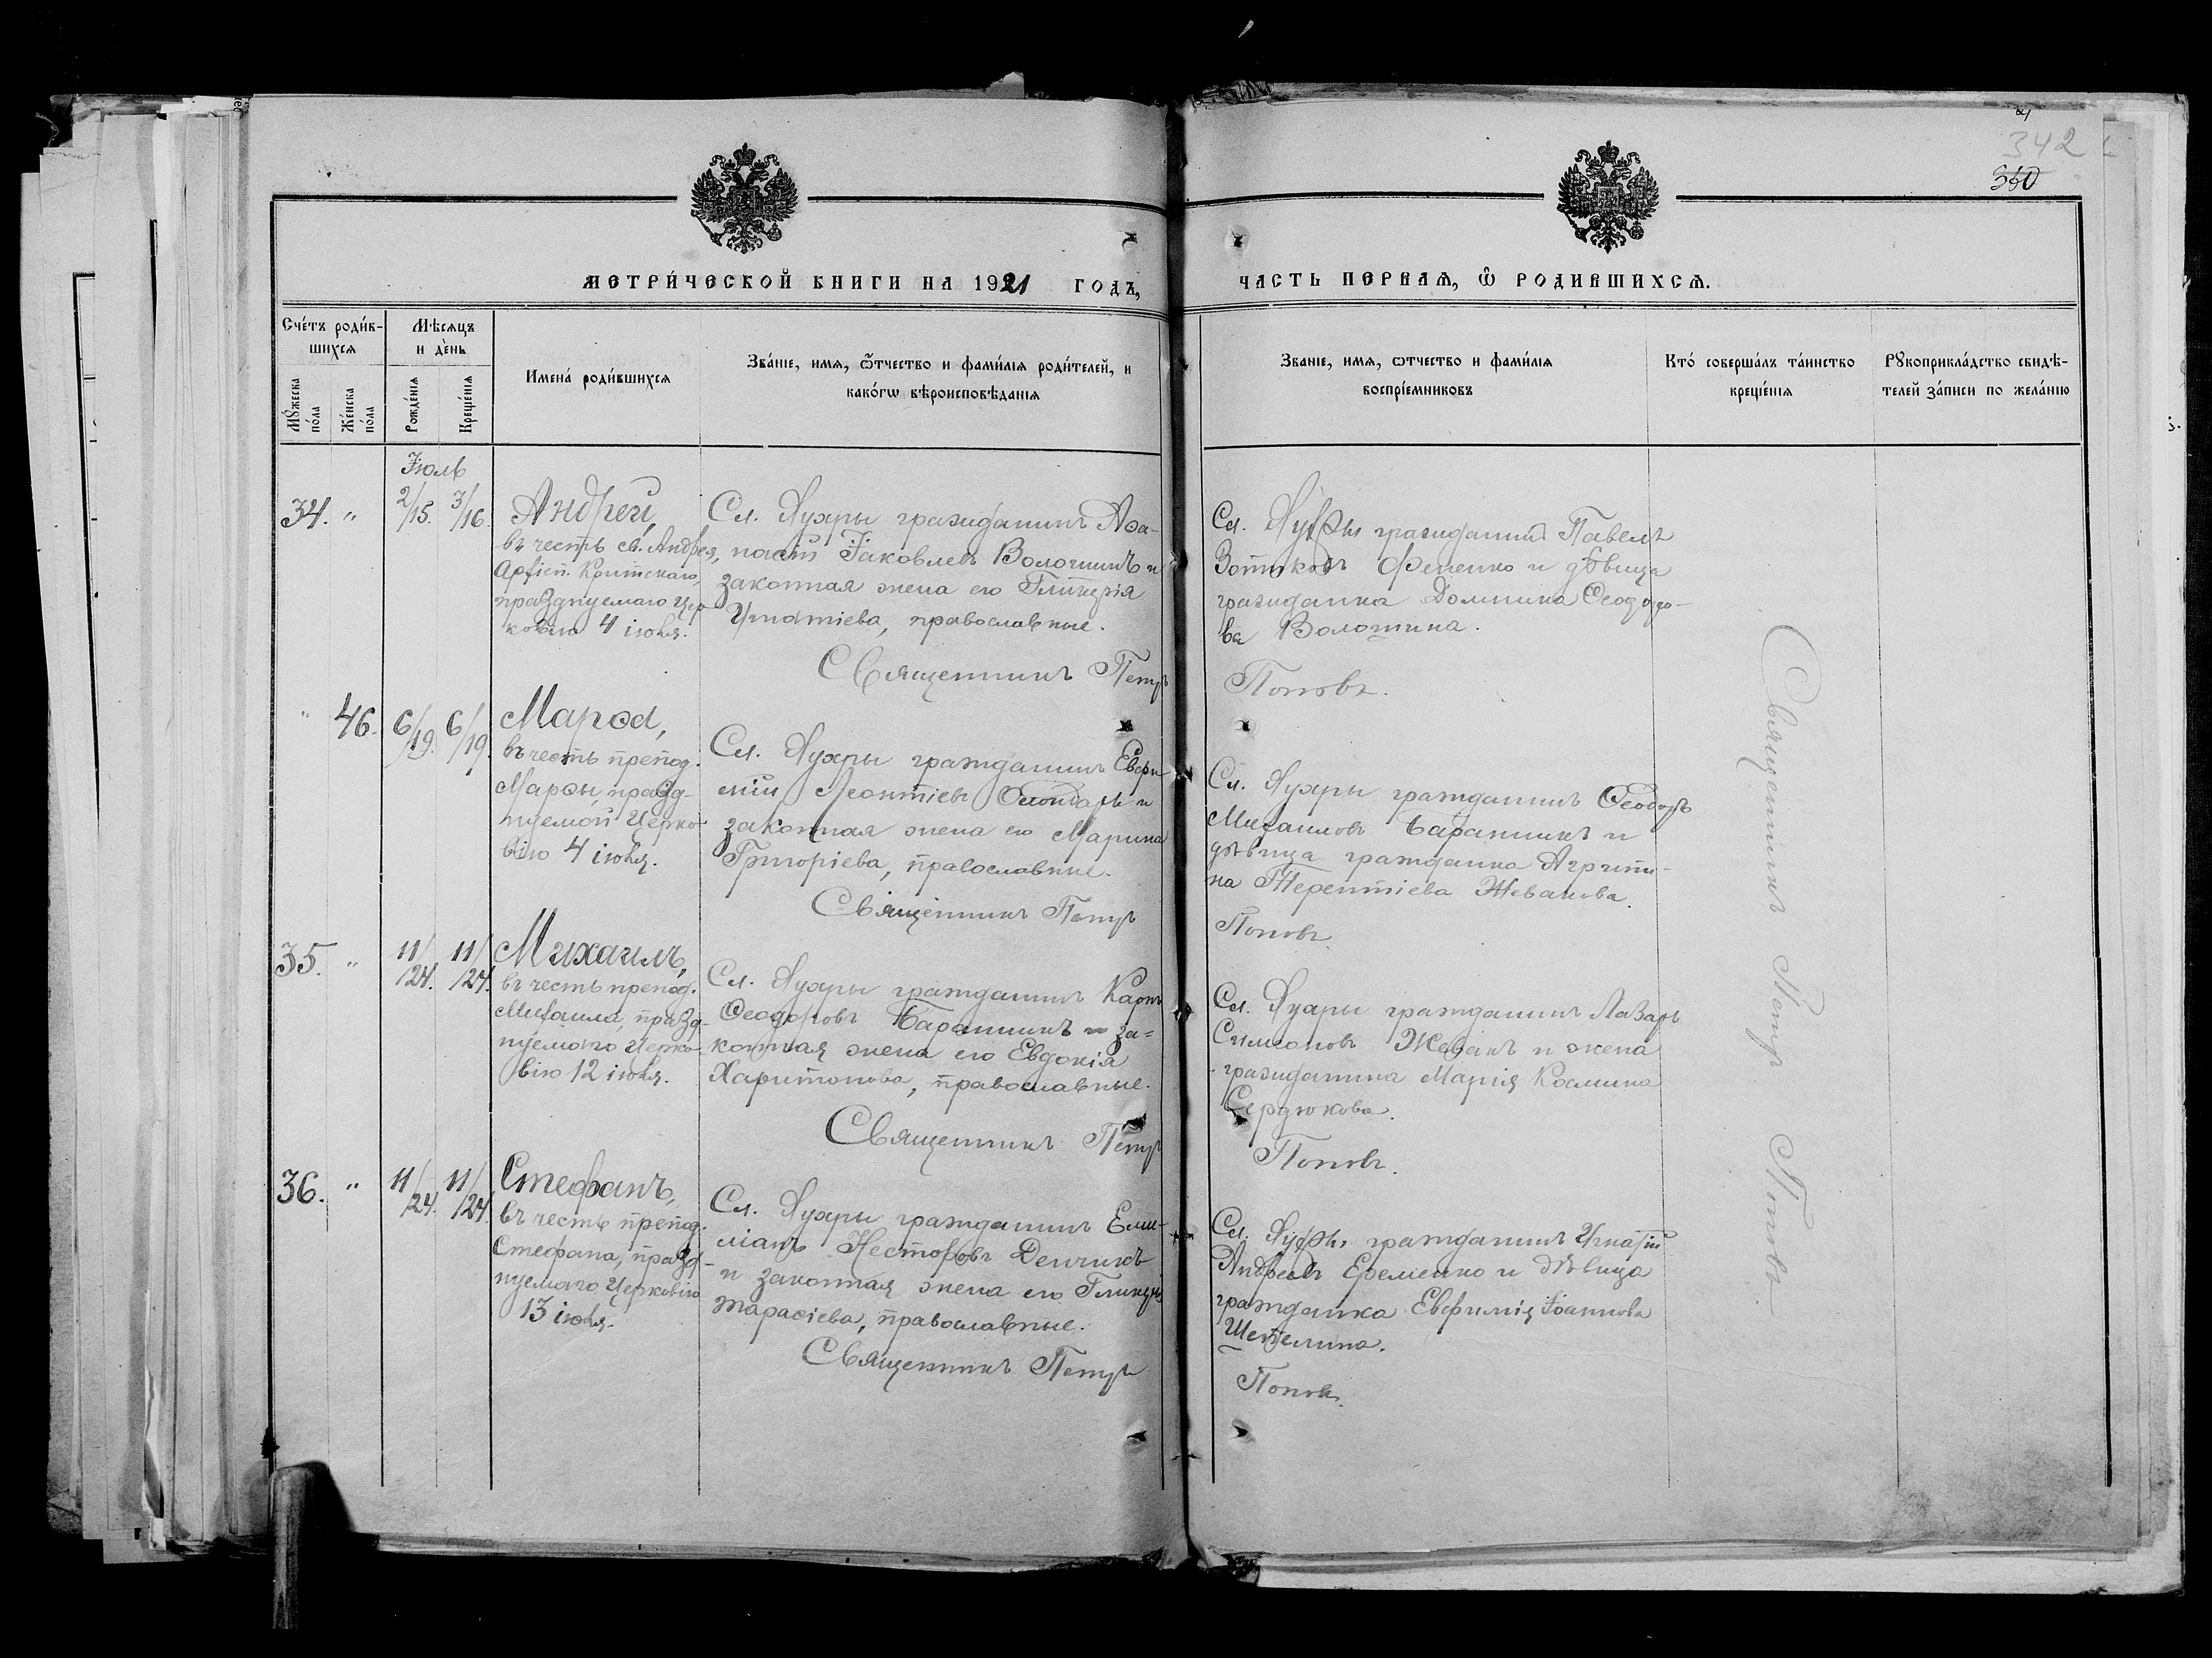 342
350
МЕТРИ́ЧЕСКОЙ КНИГИ НА 1921 ГОДЪ,
ЧАСТЬ ПЕРВАѦ, Ѽ РОДИВШИХСѦ.
Сче́тъ роди́в-
шихсѧ
Мꙋ́жеска по́ла
Же́нска по́ла
Мѣ́сѧцъ
и де́нь
Рожде́нїѧ
Креще́нїѧ
Имена́ роди́вшихсѧ
Зва́нїе, имѧ, ѻ҆́тчество и фами́лїѧ роди́телей, и
како́гѡ вѣроисповѣ́данїѧ
Званїе, имѧ, ѡтчество и фами́лїѧ
воспрїе́мниковъ
Кто́ соверша́лъ та́инство
креще́нїѧ
Рꙋкоприкла́дство свидѣ́-
телей за́писи по жела́нїю
Іюль
34. " 2/15. 3/16.
Андрей,
въ честь св. Андрея,
Архіеп. Критскаго,
празднуемаго Цер-
ковію 4 іюля.
Сл. гражданинъ Аѳа-
насій Іаковлевъ Волошинъ и
законная жена его Гликерія
Игнатіева, православные.
Священникъ Петръ
Сл. гражданинъ Павелъ
Зотиковъ Фененко и дѣвица
гражданка Домника Ѳеодоро-
ва Волошина.
Поповъ.
" 46. 6/19. 6/19.
Марѳа,
въ честь препод.
Марѳы, празд-
нуемой Церко-
вію 4 іюля.
Сл. гражданинъ Евѳи-
мій Леонтіевъ и
законная жена его Марина
Григоріева, православные.
Священникъ Петръ
Сл. гражданинъ Ѳеодоръ
Михаиловъ Баранникъ и
дѣвица гражданка Агриппи-
на Терентіева Жевакова.
Поповъ.
35. " 11/24. 11/24.
Михаилъ,
въ честь препод.
Михаила, празд-
нуемаго Церко-
вію 12 іюля.
Сл. гражданинъ Карпъ
Ѳеодоровъ Баранникъ и за-
конная жена его Евдокія
Харитонова, православные.
Священникъ Петръ
Сл. гражданинъ Лазарь
Симеоновъ Жевакъ и жена
гражданина Марія Космина
Сердюкова.
Поповъ.
36. " 11/24. 11/24.
Стефанъ,
въ честь препод.
Стефана, празд-
нуемаго Церковію
13 іюля.
Сл. гражданинъ Еми-
ліанъ Несторовъ Демчикъ
и законная жена его
Тарасіева, православные.
Священникъ Петръ
Сл. гражданинъ Игнатій
Андреевъ Еременко и дѣвица
гражданка Евфимія Іоаннова
Шепелина.
Поповъ.
Священникъ Петръ Поповъ